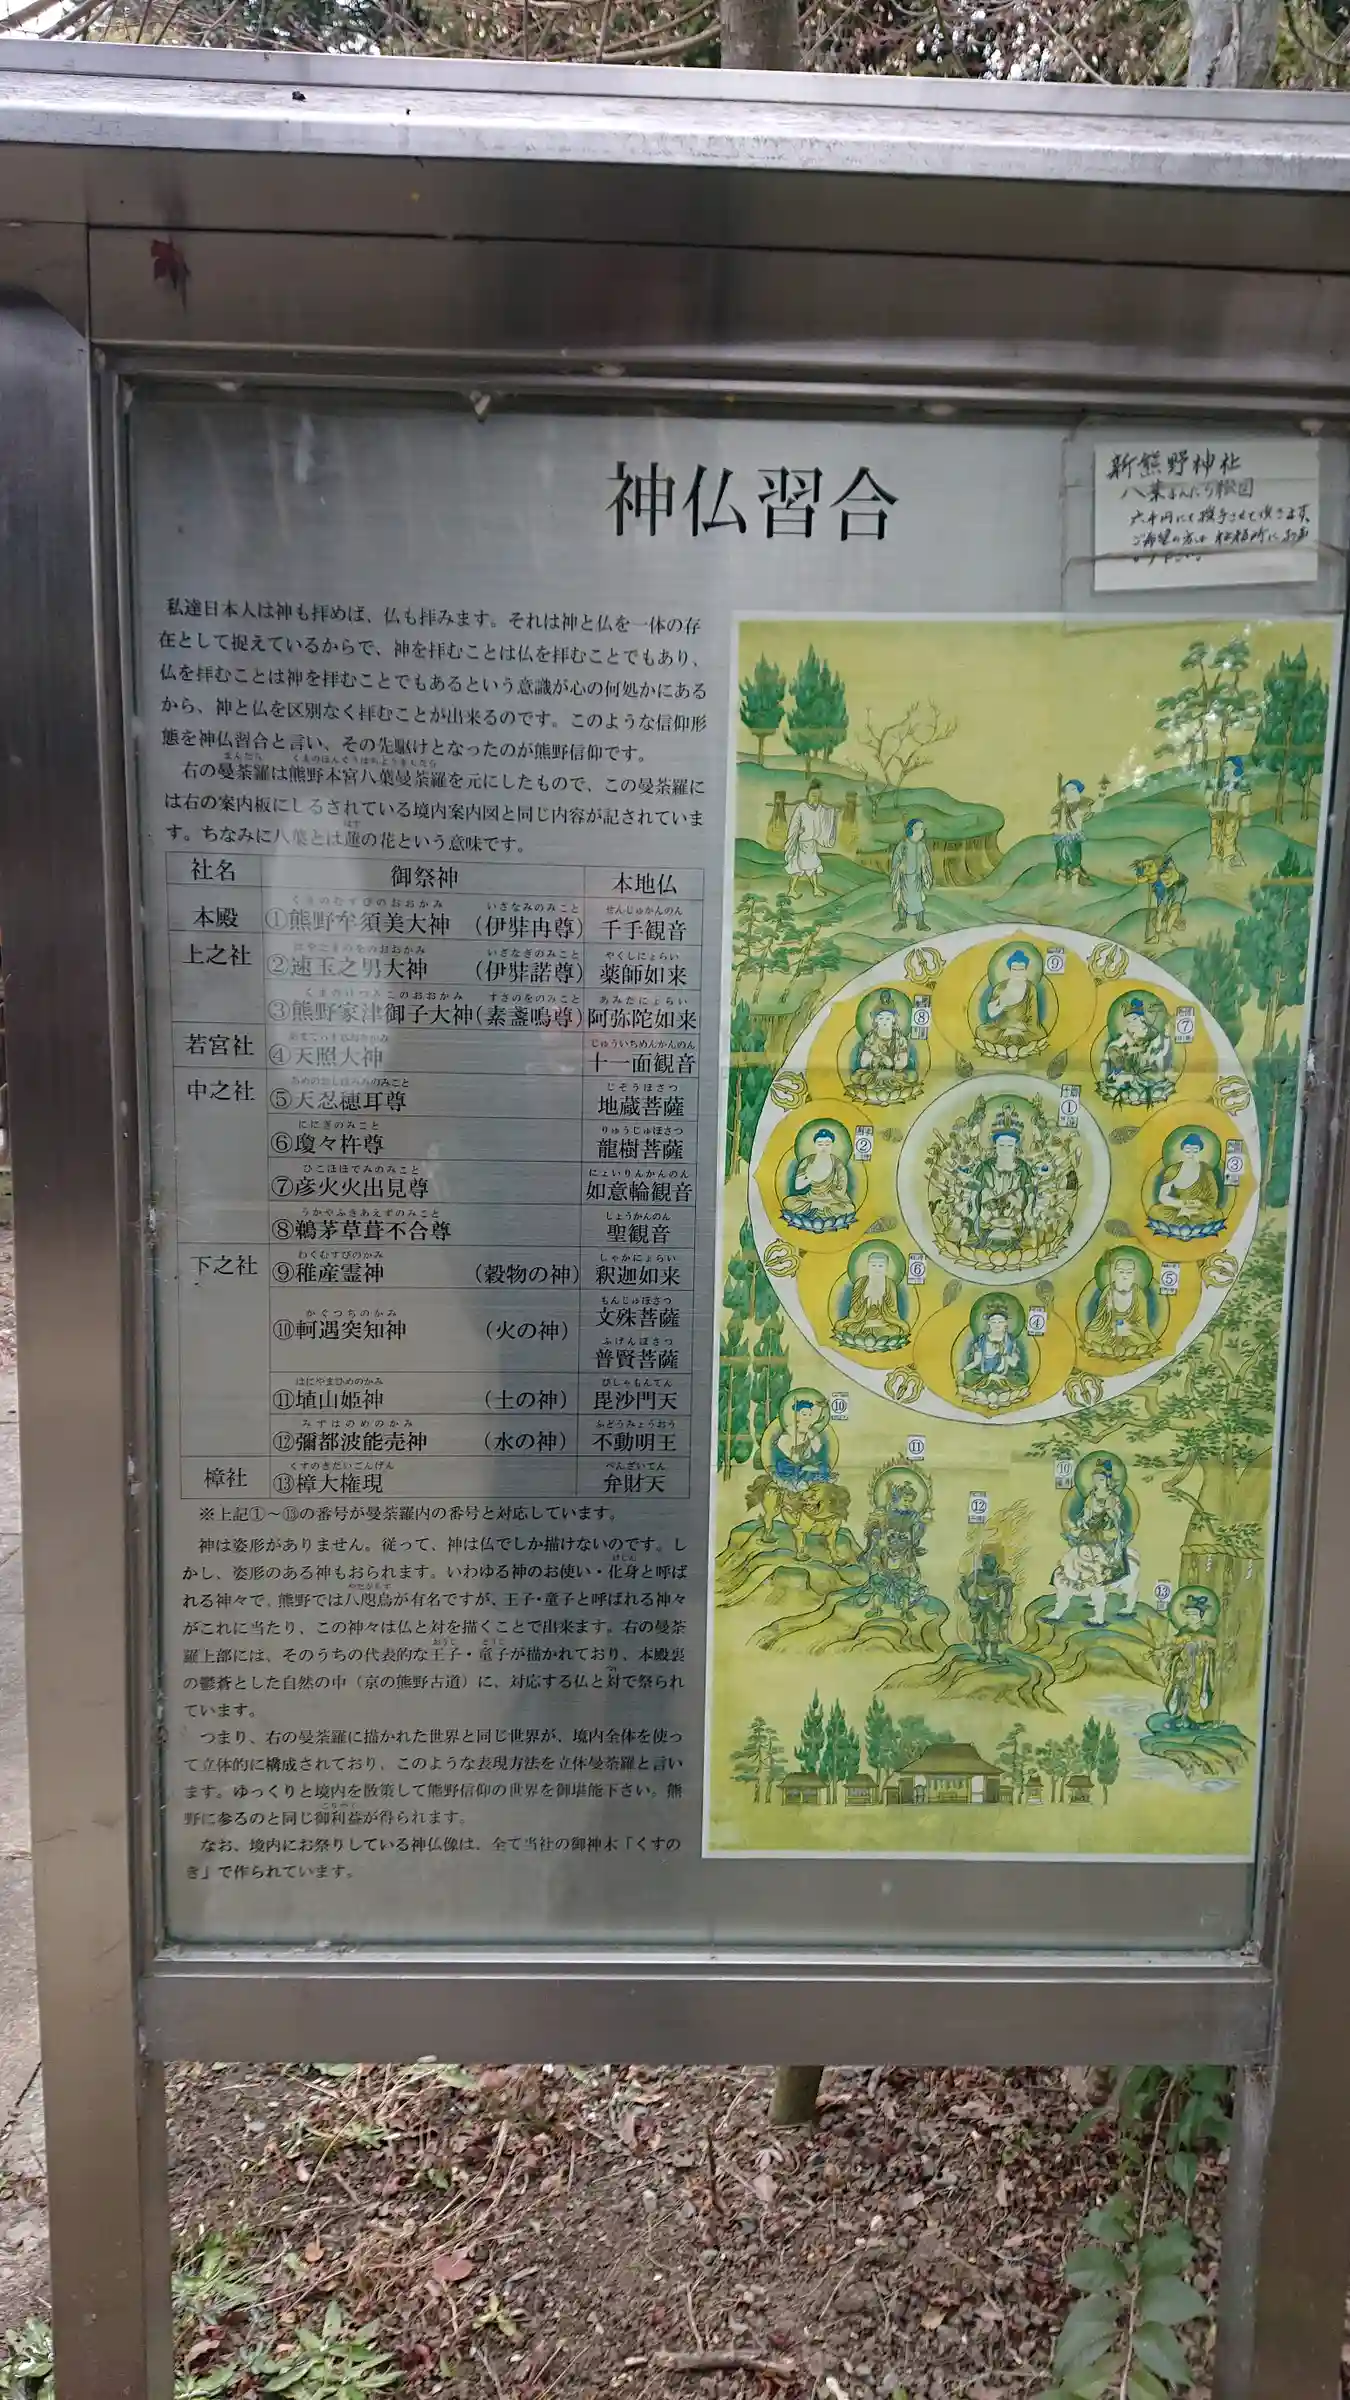 神仏習合
新熊野神社
私達日本人は神も拝めば、仏も拝みます。それは神と仏を一体の存
在として捉えているからで、神を拝むことは仏を拝むことでもあり、
仏を拝むことは神を拝むことでもあるという意識が心の何処かにある
から、神と仏を区別なく拝むことが出来るのです。このような信仰形
態を神仏習合と言い、その先駆けとなったのが熊野信仰です。
右の曼荼羅は熊野本宮八葉曼荼羅を元にしたもので、この曼荼羅に
は右の案内板にしるされている境内案内図と同じ内容が記されていま
す。ちなみに八葉とは蓮の花という意味です。
社名 御祭神 本地仏
本殿 ①熊野牟須美大神 (伊弉冉尊) 千手観音
上之社 ②速玉之男大神 (伊弉諾尊) 薬師如来
③熊野家津御子大神(素盞嗚尊) 阿弥陀如来
若宮社 ④天照大神 十一面観音
中之社 ⑤天忍穂耳尊 地蔵菩薩
⑥瓊々杵尊 龍樹菩薩
⑦彦火火出見尊 如意輪観音
⑧鵜茅草葺不合尊 聖観音
下之社 ⑨稚産霊神 (穀物の神) 釈迦如来
⑩軻遇突知神 (火の神) 文殊菩薩
普賢菩薩
⑪埴山姫神 (土の神) 毘沙門天
⑫彌都波能売神 (水の神) 不動明王
樟社 ⑬樟大権現 弁財天
※上記①～⑬の番号が曼荼羅内の番号と対応しています。
神は姿形がありません。従って、神は仏でしか描けないのです。し
かし、姿形のある神もおられます。いわゆる神のお使い・化身と呼ば
れる神々で、熊野では八咫烏が有名ですが、王子・童子と呼ばれる神々
がこれに当たり、この神々は仏と対を描くことで出来ます。右の曼荼
羅上部には、そのうちの代表的な王子・童子が描かれており、本殿裏
の鬱蒼とした自然の中（京の熊野古道）に、対応する仏と対で祭られ
ています。
つまり、右の曼荼羅に描かれた世界と同じ世界が、境内全体を使っ
て立体的に構成されており、このような表現方法を立体曼荼羅と言い
ます。ゆっくりと境内を散策して熊野信仰の世界を御堪能下さい。熊
野に参るのと同じ御利益が得られます。
なお、境内にお祭りしている神仏像は、全て当社の御神木「くすの
き」で作られています。
⑨
⑧
⑦
①
②
③
⑥
⑤
④
⑩
⑪
⑫
⑩
⑬